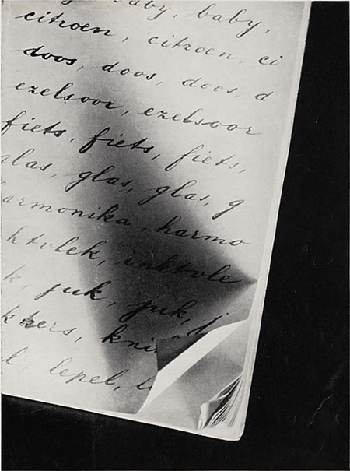 baby, baby,
citroen, citroen, ci
doos, doos, doos, d
ezelsoor, ezelsoor
fiets, fiets, fiets,
glas, glas, glas, g
armonika, harmo
ktvlek, inktvle
k, juk, juk, j
kkers, kni
l, lepel, l